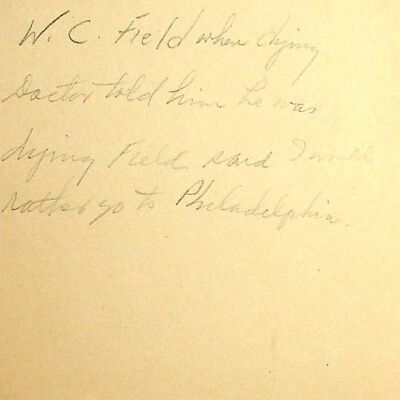 W. C. Field when dying
Doctor told him he was
dying Field said I would
rather go to Philadelphia.